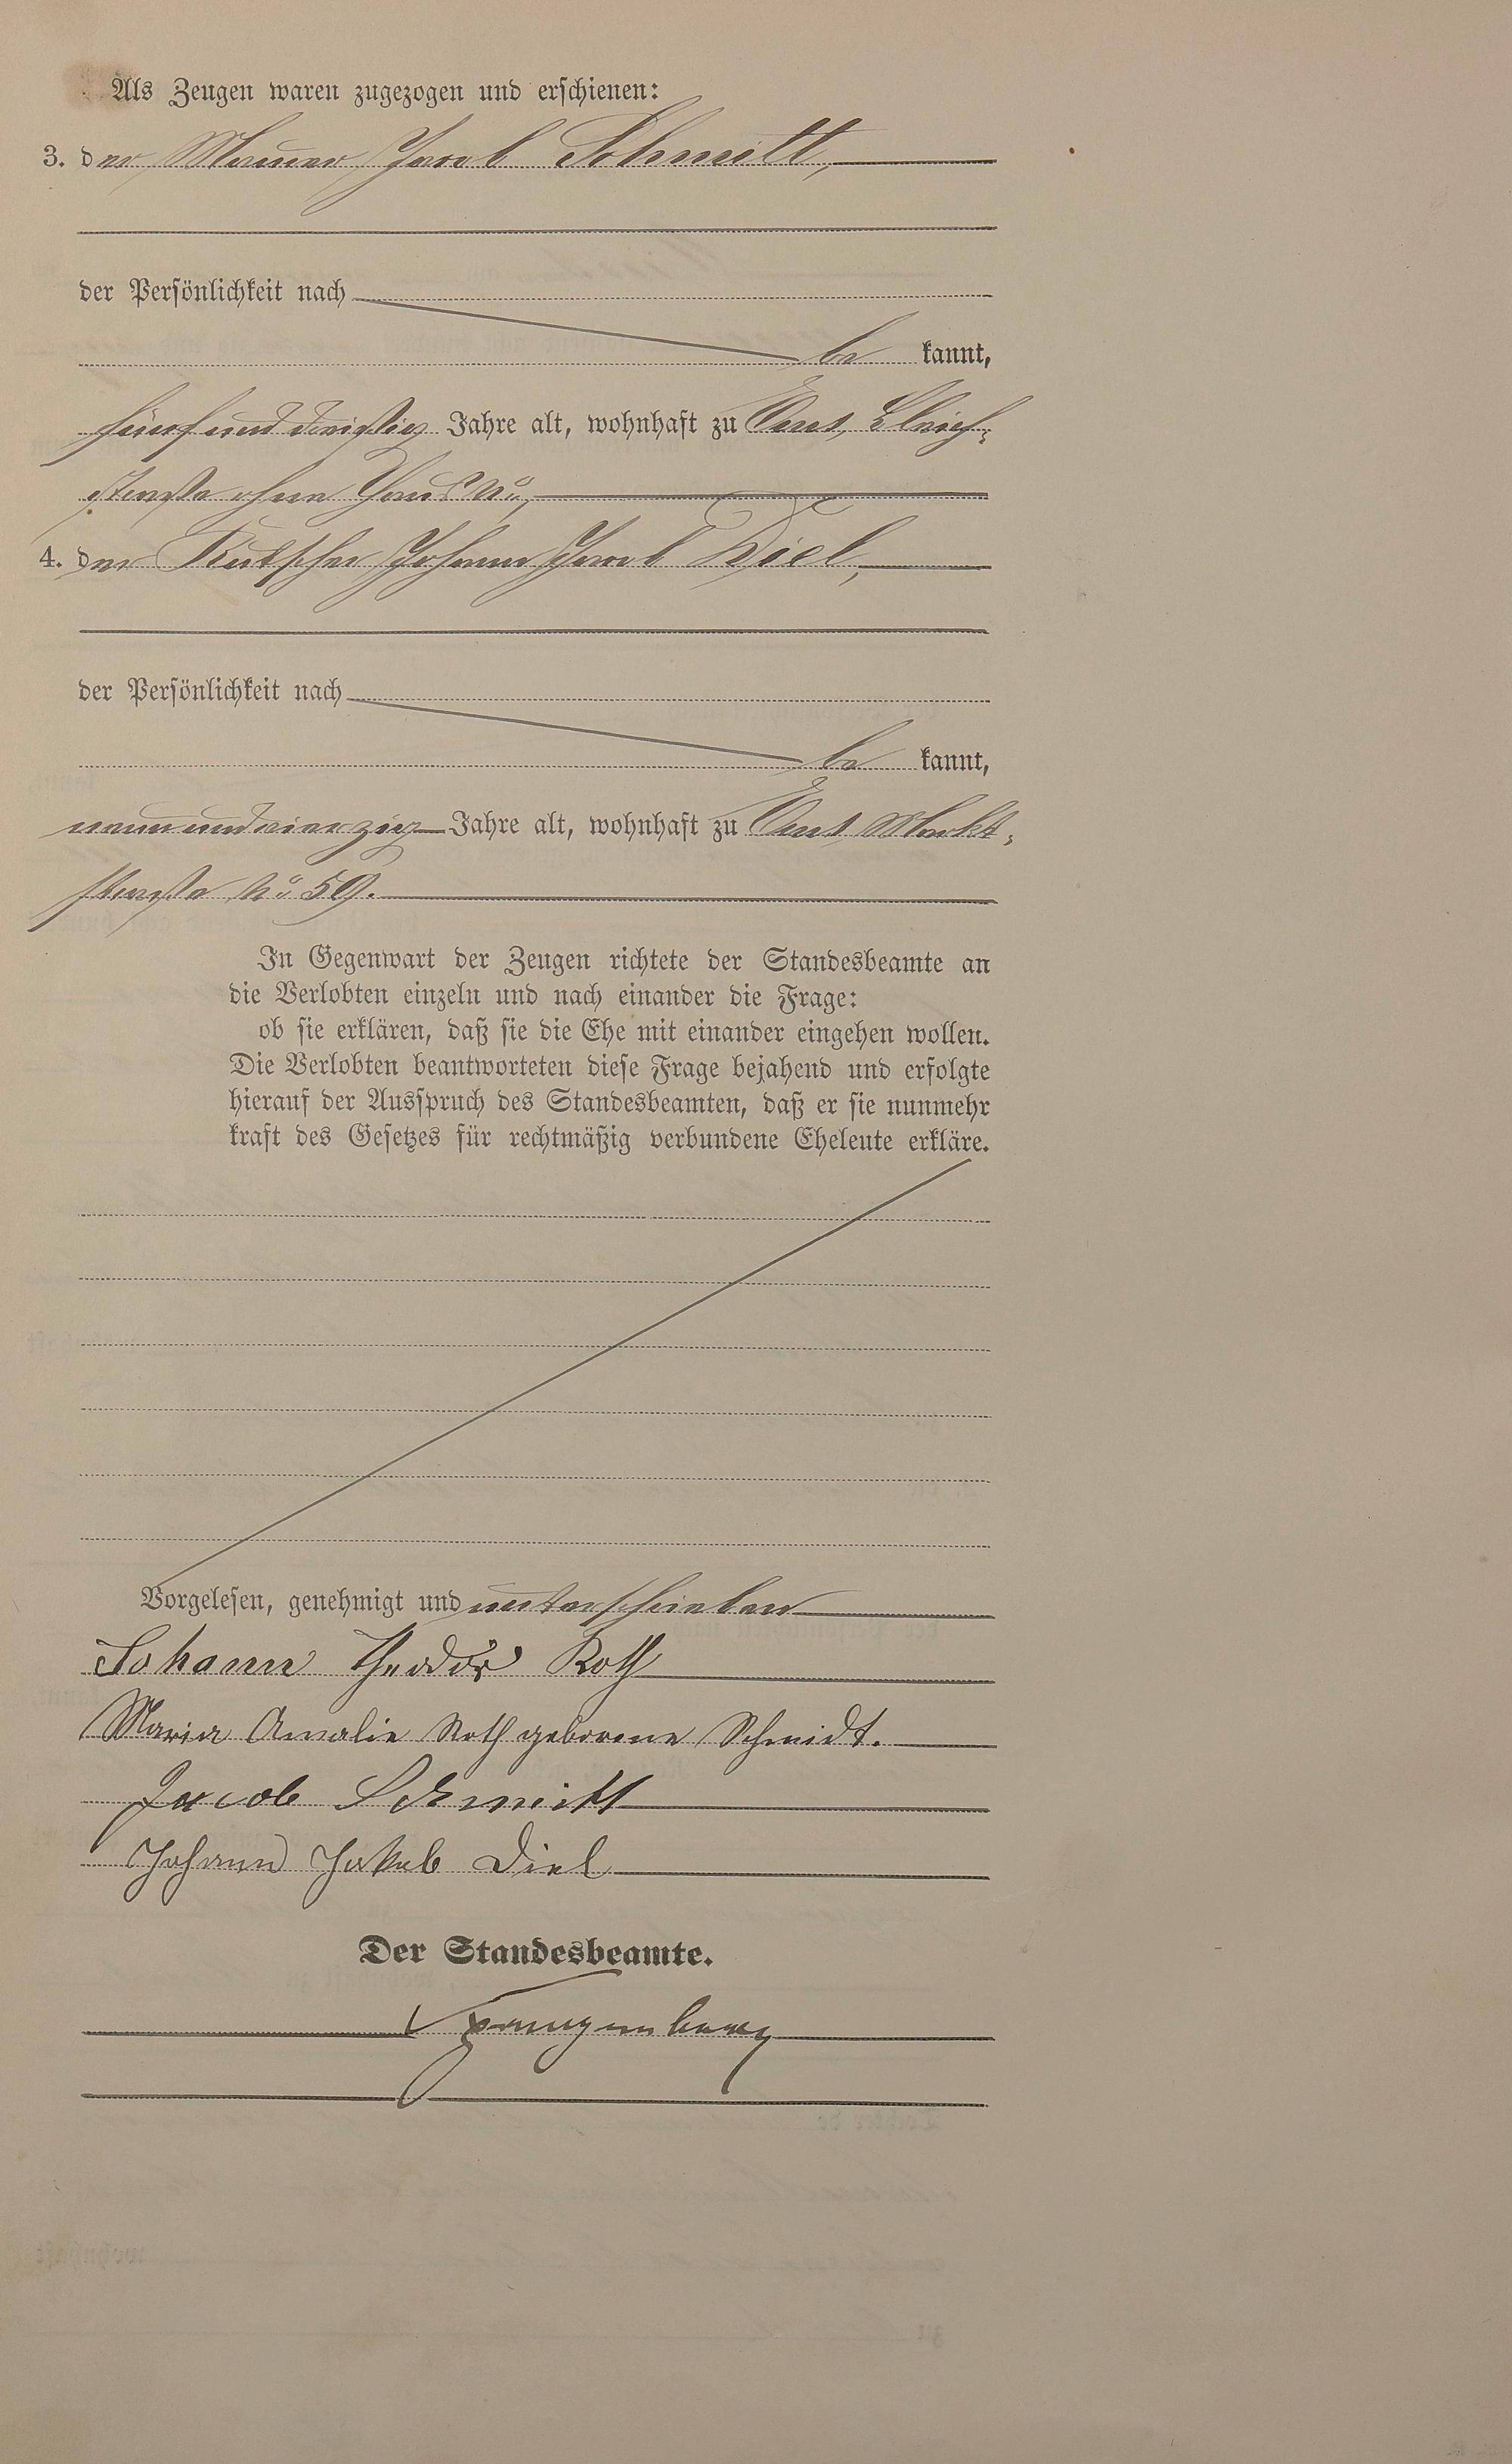 Als Zeugen waren zugezogen und erschienen:
3. der Maurer Jacob Schmitt,
der Persönlichkeit nach
be kannt,
fünf und dreißig Jahre alt, wohnhaft zu Ems, Bleich-
straße ohne Haus No.,
4. der Kutscher Johann Jacob Diel,
der Persönlichkeit nach
be kannt,
neun und vierzig Jahre alt, wohnhaft zu Ems Markt-
straße No. 59.
In Gegenwart der Zeugen richtete der Standesbeamte an
die Verlobten einzeln und nach einander die Frage:
ob sie erklären, daß sie die Ehe mit einander eingehen wollen.
Die Verlobten beantworteten diese Frage bejahend und erfolgte
hierauf der Ausspruch des Standesbeamten, daß er sie nunmehr
kraft des Gesetzes für rechtmäßig verbundene Eheleute erkläre.
Vorgelesen, genehmigt und unterschrieben
Johann Theodor Roth
Maria Amalie Roth geborene Schmidt.
Jacob Schmitt
Johann Jakob Diel
Der Standesbeamte.